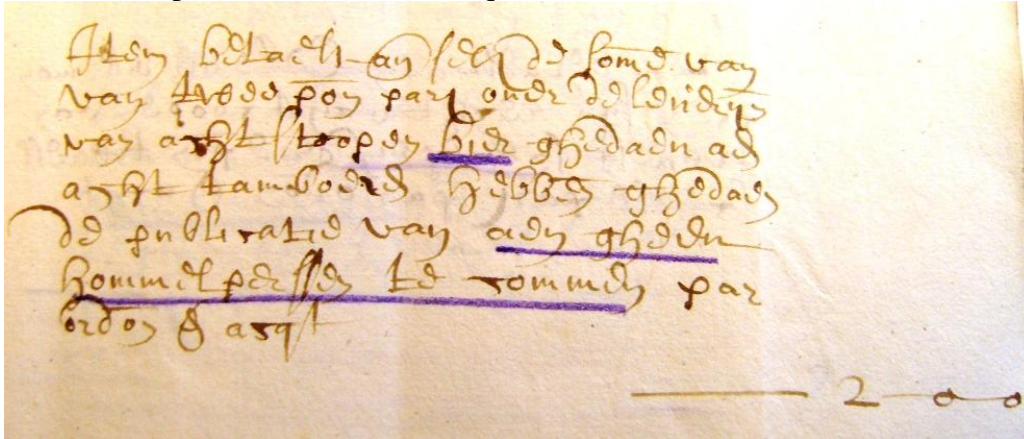 Item betaelt an selt de some van
van twee pon par over de leveryn
van acht stoopen bier ghedaen aen
acht tamboers hebben ghedaen
de publicatie van aen gheen
hommelperssen te commen par
ordon & acqt
2 - o - o